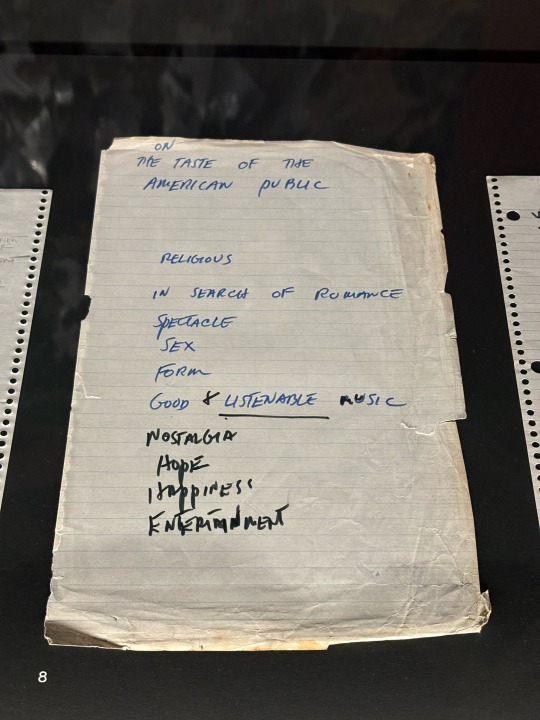 ON
THE TASTE OF THE
AMERICAN PUBLIC
RELIGIOUS
IN SEARCH OF ROMANCE
SPECTACLE
SEX
FORM
GOOD & LISTENABLE MUSIC
NOSTALGIA
HOPE
HAPPINESS
ENTERTAINMENT
8